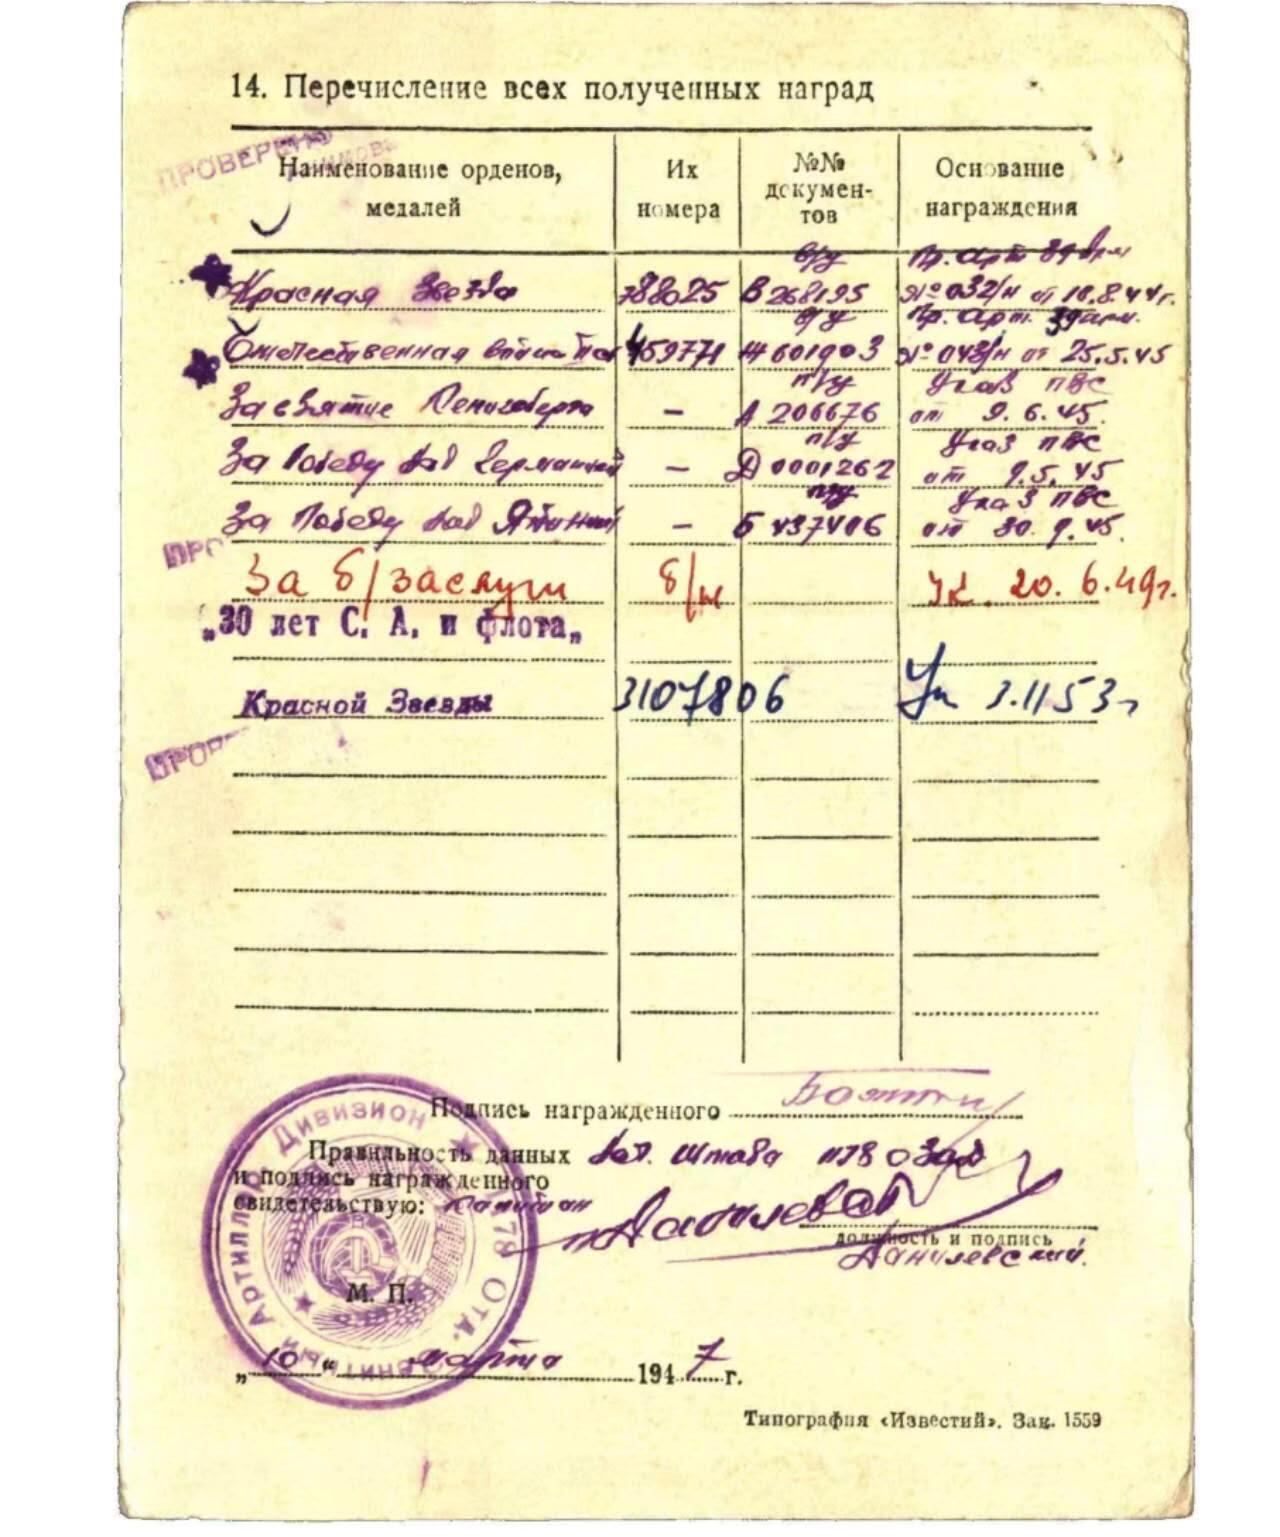 14. Перечисление всех полученных наград
ПРОВЕРЕНО
Наименование орденов, медалей
Их номера
№№ документов
Основание награждения
в/у Пр. Арт 39 Арм
Красная Звезда 788025 В 268195 № 032/н от 10.8.44 г.
Пр. Арт. 39 арм.
Отечественная война 459771 Ж 601903 № 043/н от 25.5.45
п/у Указ ПВС
За взятие Кенигсберга — А 206676 от 9.6.45.
п/у Указ ПВС
За Победу над Германией — Д 0001262 от 9.5.45
п/у Указ ПВС
За Победу над Японией — Б 437406 от 30.9.45.
ПРО
За б/заслуги б/н Ук. 20.6.49г.
„30 лет С. А. и флота„
Красной Звезды 3107806 Ук 3.11 53 г
ПРОВЕ
Подпись награжденного
Правильность данных Нач. Штаба 1178 ОЗАД
и подпись награжденного
свидетельствую: Капитан
должность и подпись
Данилевский.
1178 Отд. Зенитный Артилле Дивизион
М. П.
„10“ марта 1947 г.
Типография «Известий». Зак. 1559